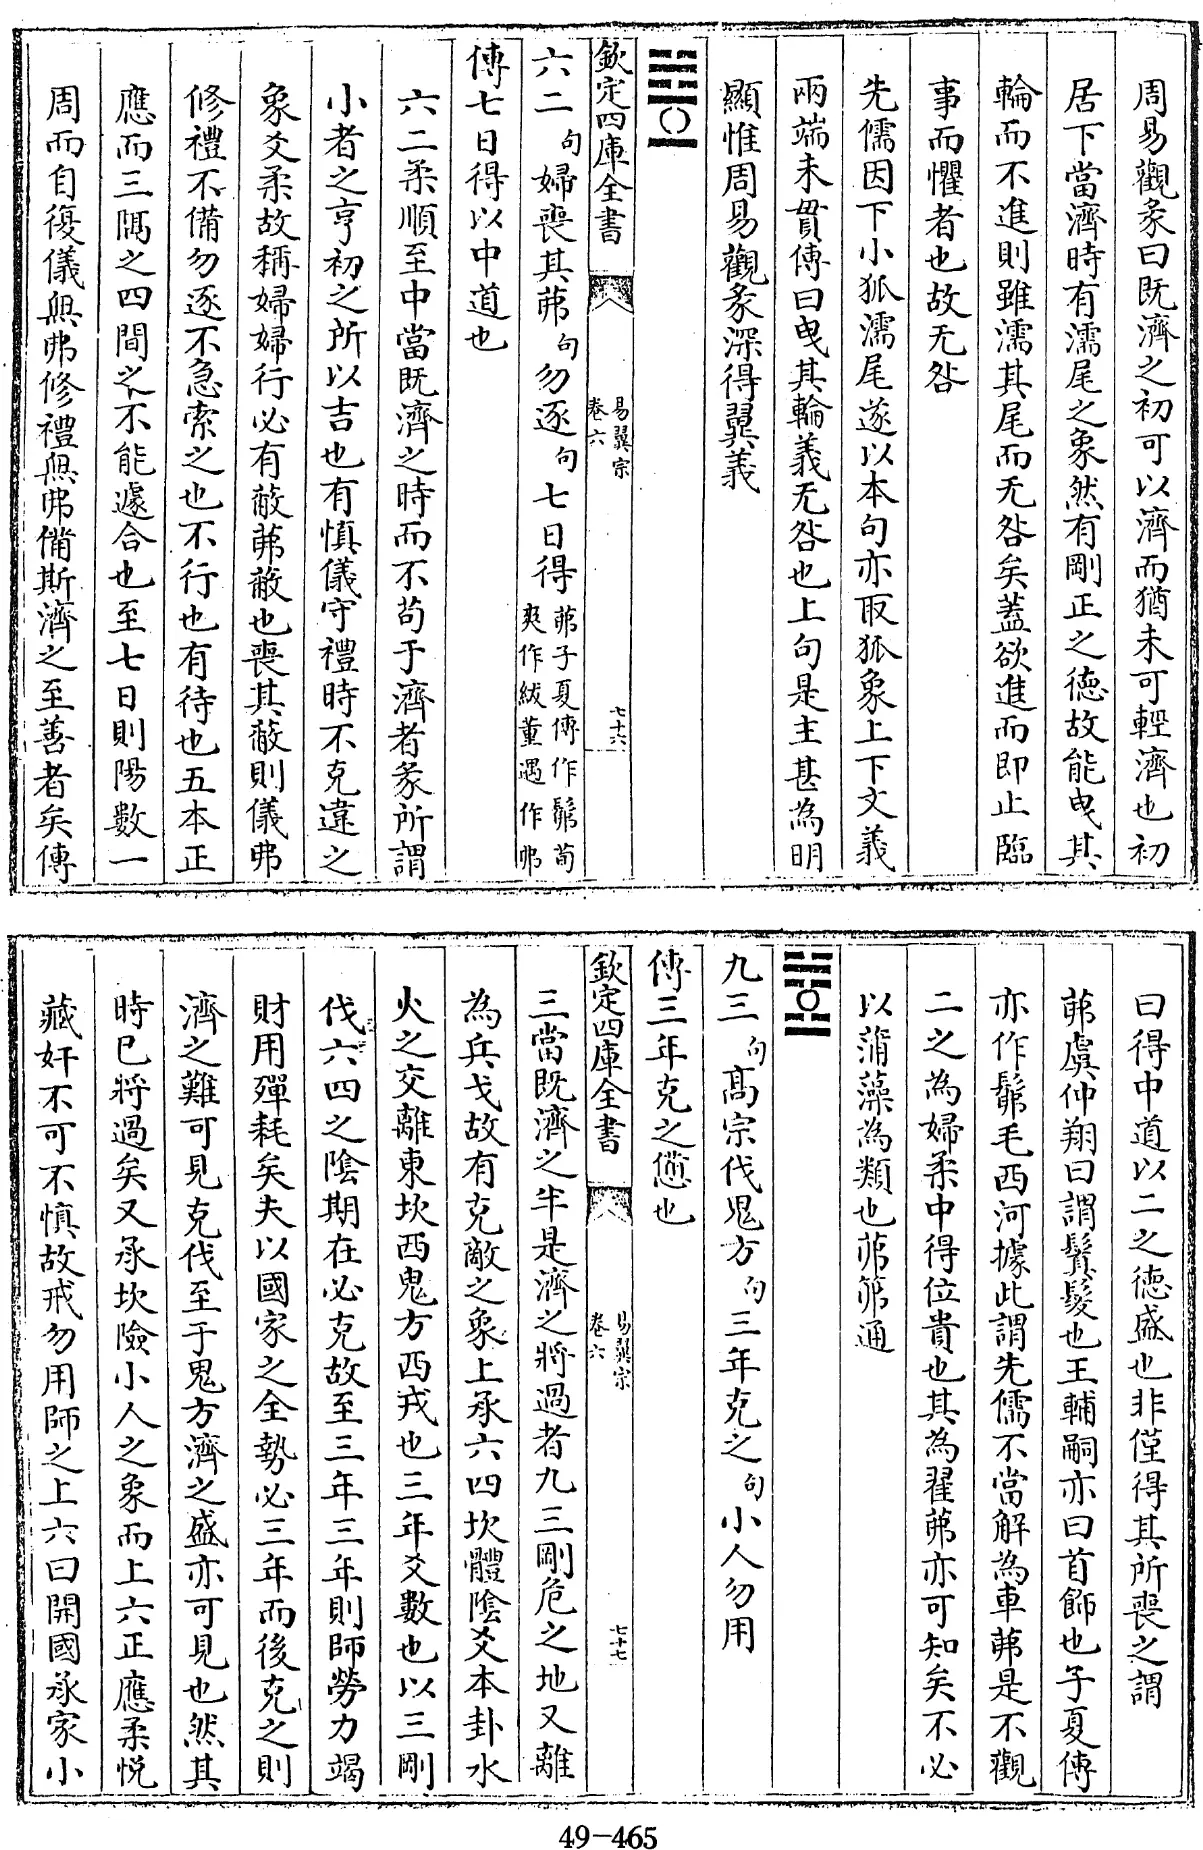 周易觀彖曰既濟之初可以濟而猶未可輕濟也初
居下當濟時有濡尾之象然有剛正之德故能曳其
輪而不進則雖濡其尾而无咎矣蓋欲進而即止臨
事而懼者也故无咎
先儒因下小狐濡尾遂以本句亦取狐象上下文義
兩端未貫傳曰曳其輪義无咎也上句是主甚為明
顯惟周易觀彖深得翼義
欽定四庫全書
易翼宗
卷六
七十六
六二句婦喪其茀句勿逐句七日得茀子夏傳作髴荀
爽作紱董遇作弗
傳七日得以中道也
六二柔順至中當既濟之時而不苟于濟者彖所謂
小者之亨初之所以吉也有慎儀守禮時不克違之
象爻柔故稱婦婦行必有蔽茀蔽也喪其蔽則儀弗
修禮不備勿逐不急索之也不行也有待也五本正
應而三隅之四間之不能遽合也至七日則陽數一
周而自復儀無弗修禮無弗備斯濟之至善者矣傳
曰得中道以二之德盛也非僅得其所喪之謂
茀虞仲翔曰謂鬒髮也王輔嗣亦曰首飾也子夏傳
亦作髴毛西河據此謂先儒不當解為車茀是不觀
二之為婦柔中得位貴也其為翟茀亦可知矣不必
以蒲藻為類也茀笰通
九三句高宗伐鬼方句三年克之句小人勿用
傳三年克之憊也
欽定四庫全書
易翼宗
卷六
七十七
三當既濟之半是濟之將過者九三剛危之地又離
為兵戈故有克敵之象上承六四坎體陰爻本卦水
火之交離東坎西鬼方西戎也三年爻數也以三剛
伐六四之陰期在必克故至三年三年則師勞力竭
財用殫耗矣夫以國家之全勢必三年而後克之則
濟之難可見克伐至于鬼方濟之盛亦可見也然其
時已將過矣又承坎險小人之象而上六正應柔悅
藏奸不可不慎故戒勿用師之上六曰開國承家小
49-465